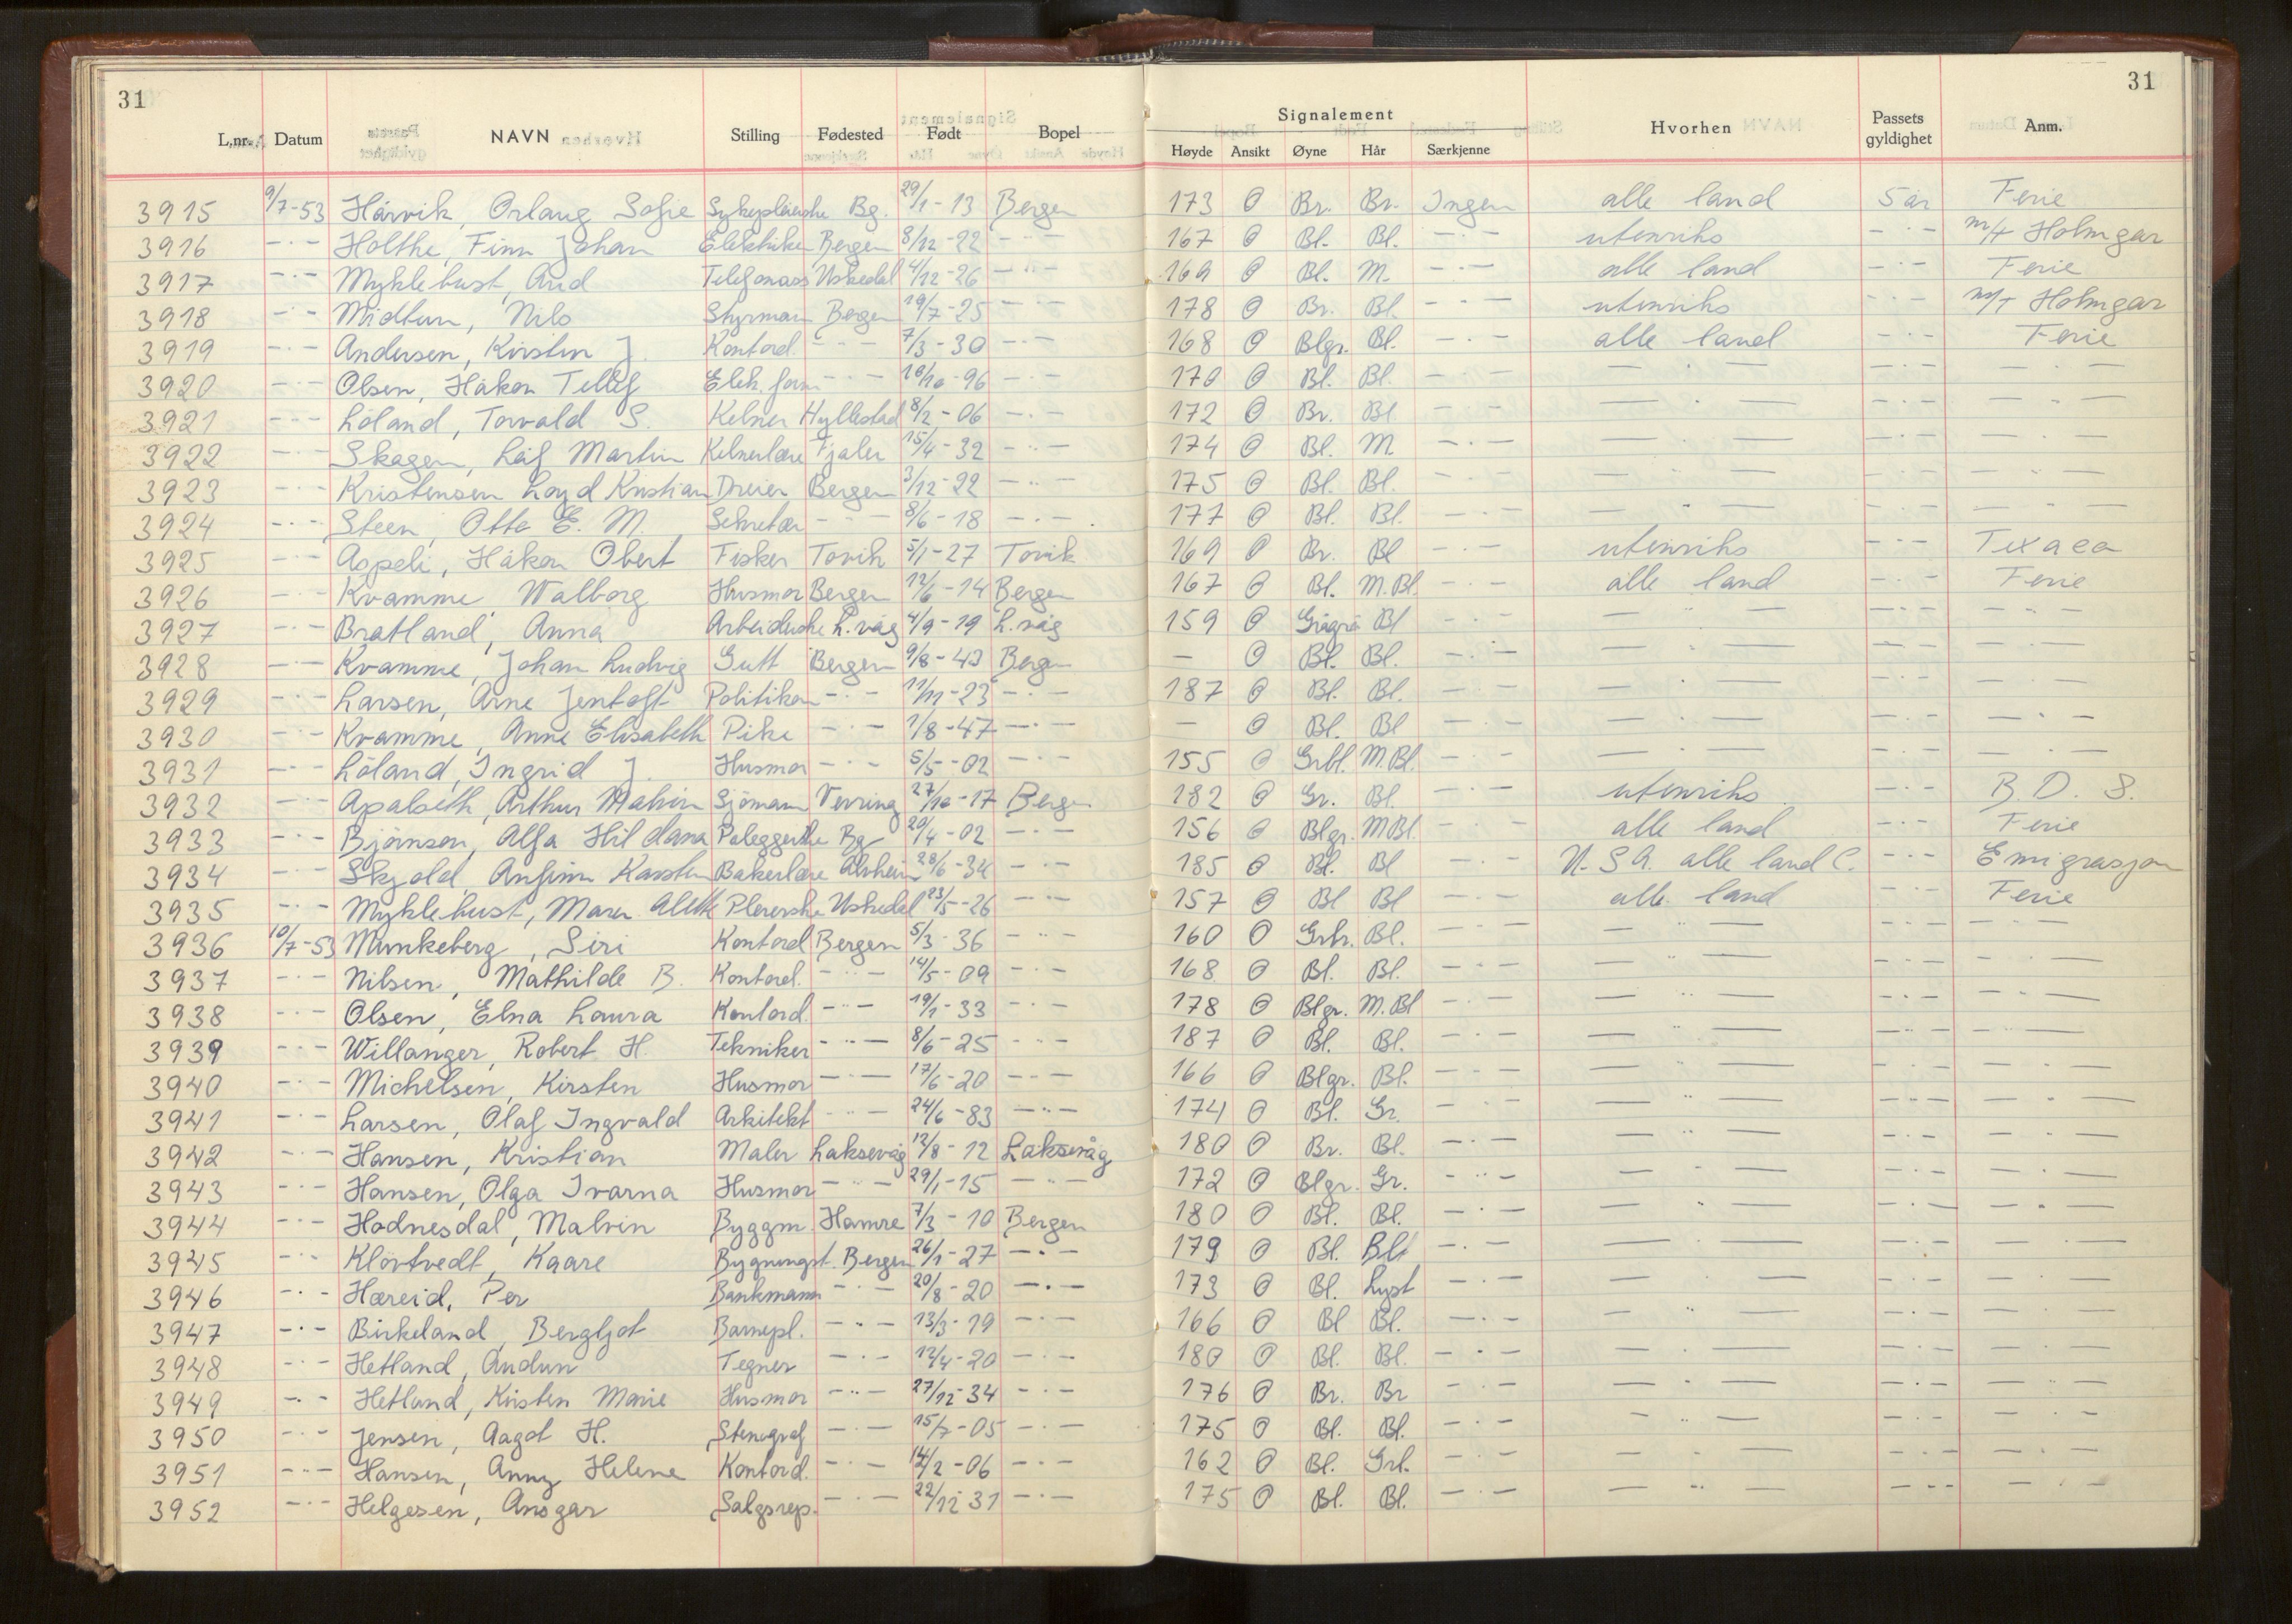 31
31
L.nr. Datum NAVN Stilling Fødested Født Bopel Signalement Hvorhen Passets gyldighet Anm.
Høyde Ansikt Øyne Hår Særkjenne
3915 9/7-53 Hårvik, Orlaug Sofie Sykepleierske Bg. 29/1-13 Bergen 173 O Br. Br. Ingen alle land 5 år Ferie
3916 -"- Holthe, Finn Johan Elektriker Bergen 8/12-22 -"- 167 O Bl. Bl. -"- utenriks -"- m/t Holmgar
3917 -"- Myklebust, Arid Telefonass Uskedal 4/12-26 -"- 169 O Bl. M. -"- alle land -"- Ferie
3918 -"- Midtun, Nils Styrmann Bergen 19/7-25 -"- 178 O Br. Bl. -"- utenriks -"- m/t Holmgar
3919 -"- Andersen, Kirsten J. Kontord. -"- 7/3-30 -"- 168 O Blgr. Bl. -"- alle land -"- Ferie
3920 -"- Olsen, Håkon Tellef Elek. form -"- 10/10-96 -"- 170 O Bl. Bl. -"- -"- -"- -"-
3921 -"- Løland, Torvald S. Kelner Hyllestad 8/2-06 -"- 172 O Br. Bl -"- -"- -"- -"-
3922 -"- Skagen, Leif Martin Kelnerlære Fjaler 15/4-32 -"- 174 O Bl. M -"- -"- -"- -"-
3923 -"- Kristensen Loyd Kristian Dreier Bergen 3/12-22 -"- 175 O Bl. Bl. -"- -"- -"- -"-
3924 -"- Steen, Otto E. M. Sekretær -"- 8/6-18 -"- 177 O Bl. Bl. -"- -"- -"- -"-
3925 -"- Aspeli, Håkon Obert Fisker Torvik 5/1-27 Torvik 169 O Br. Bl -"- utenriks -"- Texaco
3926 -"- Kvamme Walborg Husmor Bergen 12/6-14 Bergen 167 O Bl. M.Bl. -"- alle land -"- Ferie
3927 -"- Bratland, Anna Arbeiderske L.våg 4/9-19 L.våg 159 O Grågrø Bl -"- -"- -"- -"-
3928 -"- Kvamme, Johan Ludvig Gutt Bergen 9/8-43 Bergen - O Bl. Bl. -"- -"- -"- -"-
3929 -"- Larsen, Arne Jentoft Politikon -"- 11/11-23 -"- 187 O Bl. Bl. -"- -"- -"- -"-
3930 -"- Kvamme, Anne Elisabeth Pike -"- 1/8-47 -"- - O Bl. Bl -"- -"- -"- -"-
3931 -"- Løland, Ingrid J. Husmor -"- 5/5-02 -"- 155 O Grbl. M.Bl. -"- -"- -"- -"-
3932 -"- Apalseth, Arthur Malvin Sjømann Verring 27/10-17 Bergen 182 O Gr. Bl. -"- utenriks -"- B. D. S.
3933 -"- Bjørnson, Alfa Hildana Paleggerske Bg 20/4-02 -"- 156 O Blgr. M Bl. -"- alle land -"- Ferie
3934 -"- Skjold, Anfinn Karsten Bakerlære Alvheim 28/6-34 -"- 185 O Bl. Bl -"- U. S A. alle land C. -"- Emigrasjon
3935 -"- Myklebust, Maren Alette Pleierske Uskedal 23/5-26 -"- 157 O Bl Bl -"- alle land -"- Ferie
3936 10/7-53 Munkeberg, Siri Kontord Bergen 5/3-36 -"- 160 O Grbr. Bl. -"- -"- -"- -"-
3937 -"- Nilsen, Mathilde B. Kontord. -"- 14/5-09 -"- 168 O Bl. Bl. -"- -"- -"- -"-
3938 -"- Olsen, Elna Laura Kontord. -"- 19/1-33 -"- 178 O Blgr. M.Bl -"- -"- -"- -"-
3939 -"- Willanger, Robert H. Tekniker -"- 8/6-25 -"- 187 O Bl. Bl. -"- -"- -"- -"-
3940 -"- Michelsen, Kirsten Husmor -"- 17/6-20 -"- 166 O Blgr. Bl. -"- -"- -"- -"-
3941 -"- Larsen, Olaf Ingvald Arkitekt -"- 24/6-83 -"- 174 O Bl. Gr. -"- -"- -"- -"-
3942 -"- Hansen, Kristian Maler Laksevåg 12/8-12 Laksevåg 180 O Br. Bl. -"- -"- -"- -"-
3943 -"- Hansen, Olga Ivarna Husmor -"- 29/1-15 -"- 172 O Blgr. Gr. -"- -"- -"- -"-
3944 -"- Hodnesdal, Malvin Byggm. Hamre 7/3-10 Bergen 180 O Bl. Bl. -"- -"- -"- -"-
3945 -"- Kløvtvedt, Kaare Bygningst. Bergen 26/1-27 -"- 179 O Bl. Bl. -"- -"- -"- -"-
3946 -"- Hæreid, Per Bankmann -"- 20/8-20 -"- 173 O Bl. Lyst -"- -"- -"- -"-
3947 -"- Birkeland, Bergljot Barnepl. -"- 13/3-19 -"- 166 O Bl Bl. -"- -"- -"- -"-
3948 -"- Hetland, Audun Tegner -"- 12/4-20 -"- 180 O Bl. Bl. -"- -"- -"- -"-
3949 -"- Hetland, Kirsten Marie Husmor -"- 27/12-34 -"- 176 O Br. Br -"- -"- -"- -"-
3950 -"- Jensen, Aagot H. Stenograf -"- 15/7-05 -"- 175 O Bl. Bl. -"- -"- -"- -"-
3951 -"- Hansen, Anny Helene Kontord. -"- 14/2-06 -"- 162 O Bl. Grb. -"- -"- -"- -"-
3952 -"- Helgesen, Ansgar Salgsrep. -"- 22/12 31 -"- 175 O Bl. Bl. -"- -"- -"- -"-